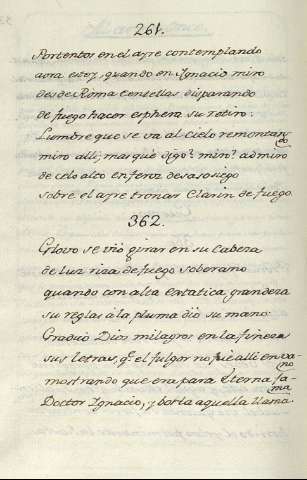 261.
Portentos en el ayre contemplando
aora estoy, quando en Ygnacio miro
desde Roma Centellas disparando
de fuego hacer esphera su retiro:
Lumbre que se va al Cielo remontando
miro alli; mas què digo? miro? admiro
de celo alto enfervz desasosiego
sobre el ayre tronar Clarin de fuego.
362.
Globo se viò girar en su Cabeza
de luz riza de fuego soberano
quando con alta Extatica grandeza
su reglas à la pluma diò su mano:
Graduò Dios milagros en la fineza
sus letras, q.e el fulgor no fuè alli en vano
mostrando que era para Eterna fama
Doctor Ignacio, y borla aquella llama.